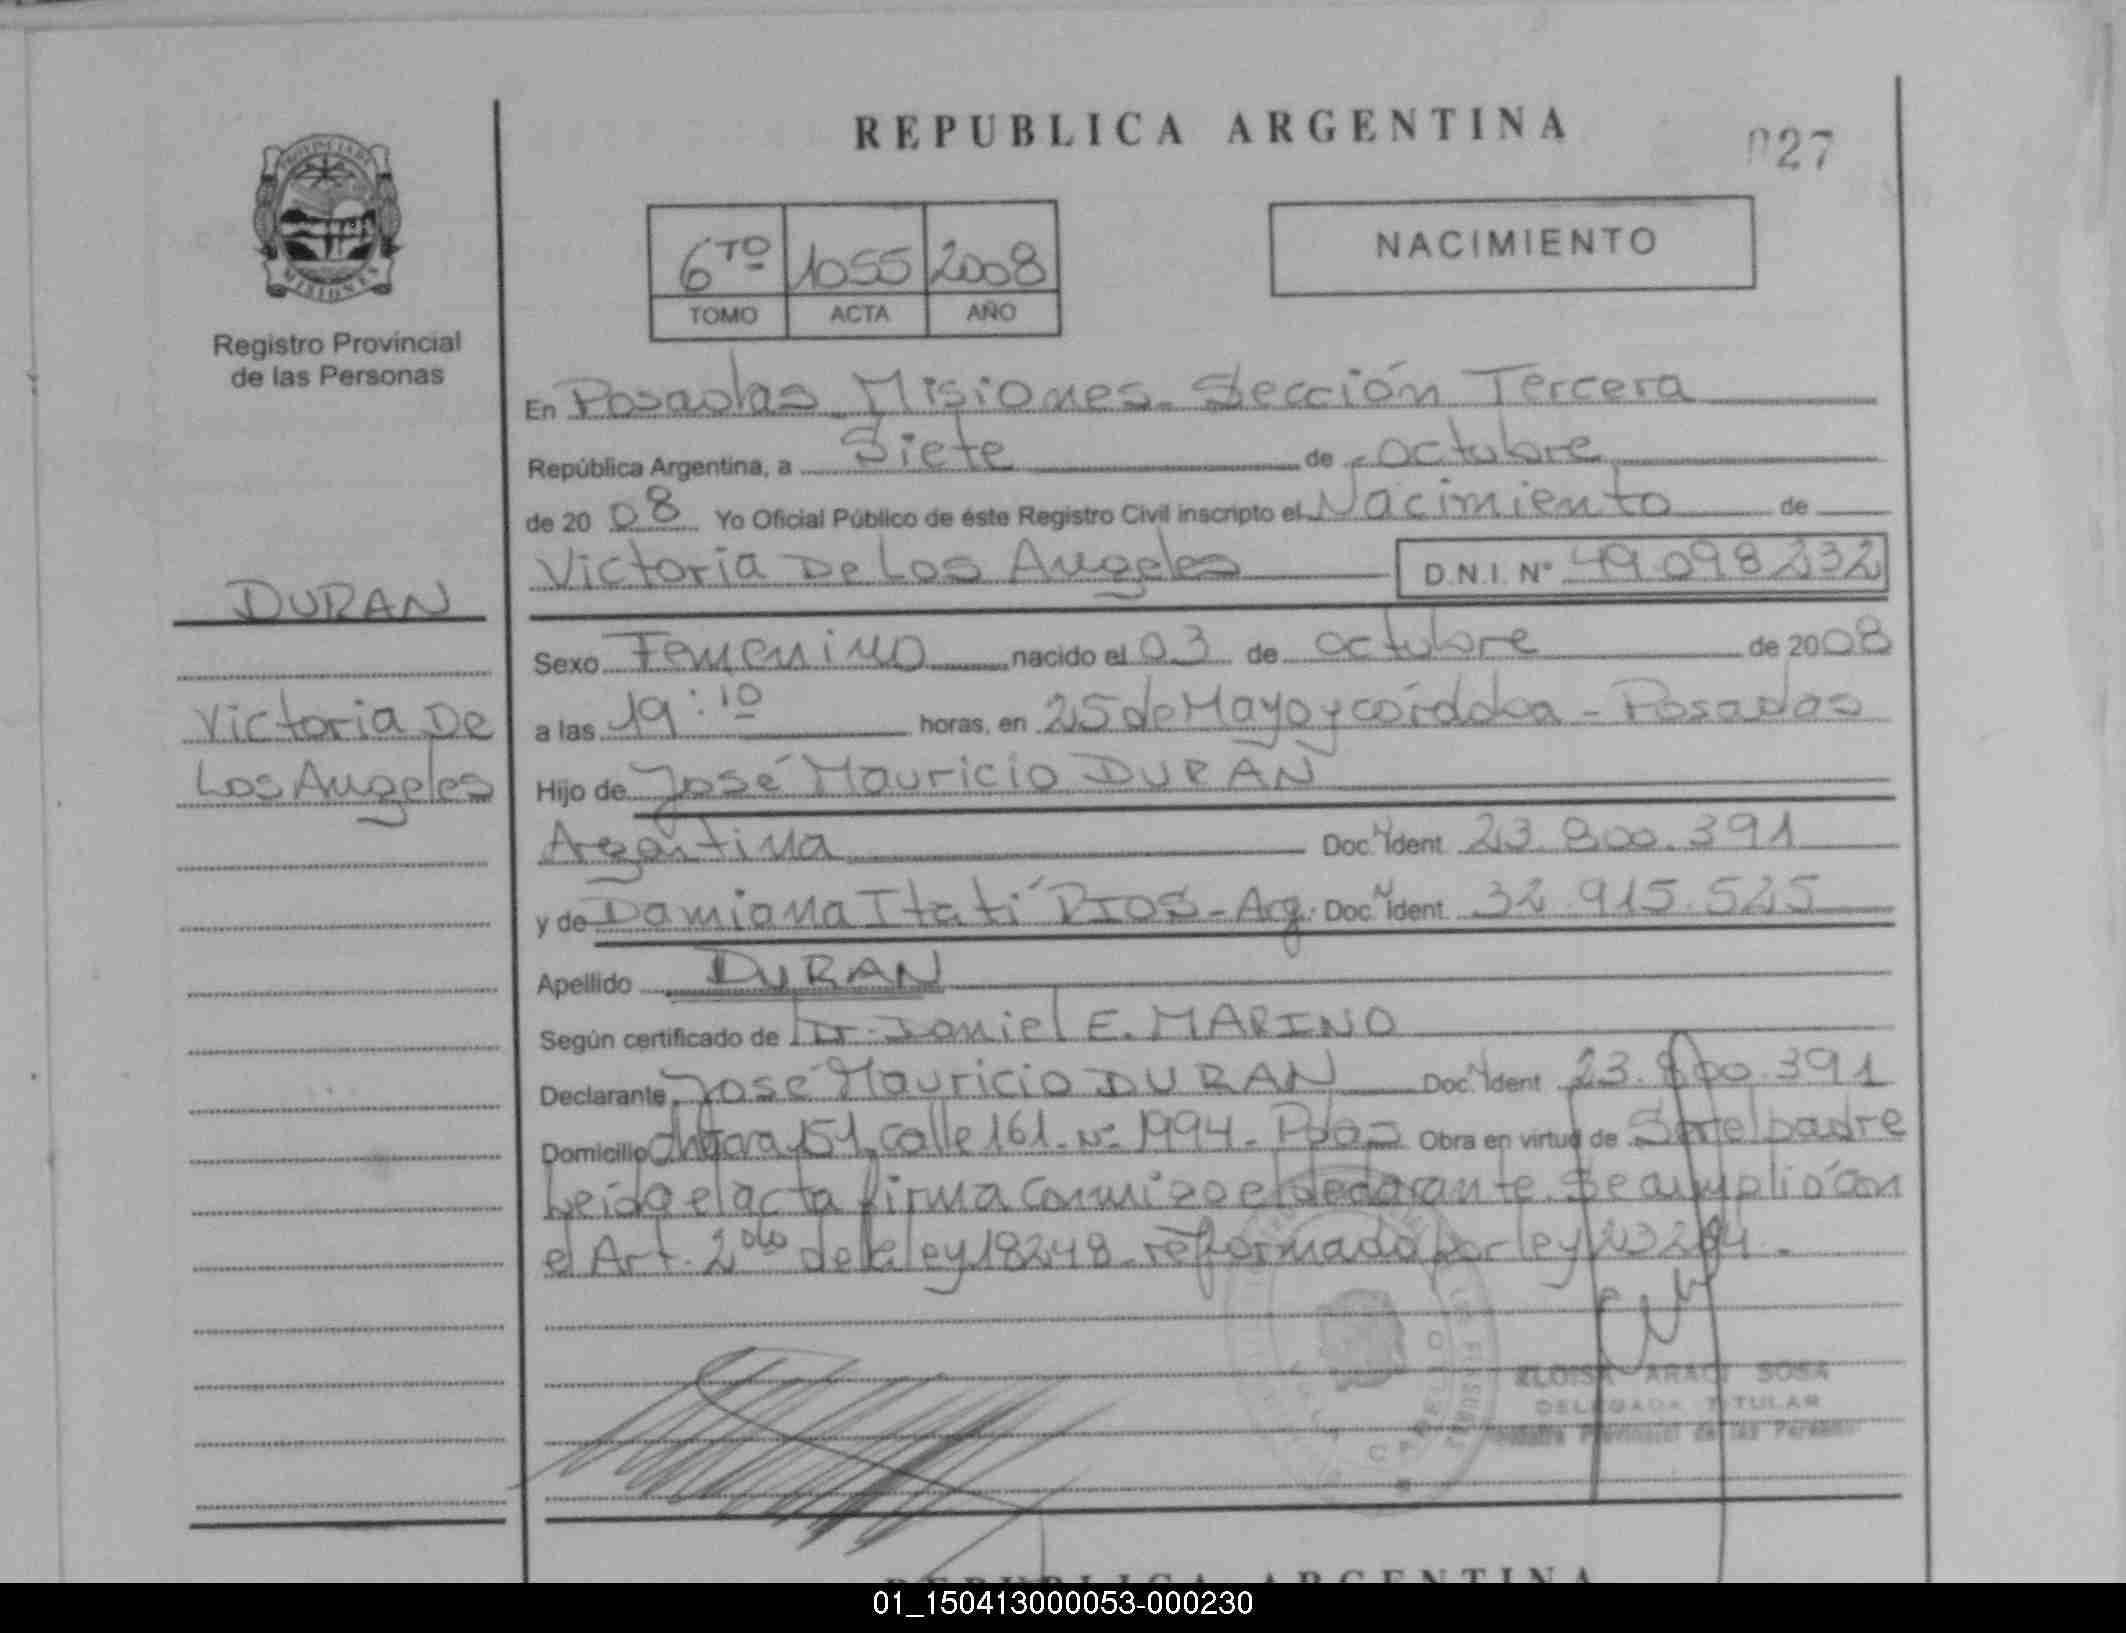 REPUBLICA ARGENTINA
027
PROVINCIA DE
MISIONES
Registro Provincial
de las Personas
6TO 1055 2008
TOMO ACTA AÑO
NACIMIENTO
En Posadas Misiones - Sección Tercera
República Argentina, a Siete de octubre
de 2008 Yo Oficial Público de éste Registro Civil inscripto el Nacimiento de
Victoria De Los Angeles D.N.I. Nº 49 098 232
DURAN
Victoria De
Los Angeles
Sexo Femenino nacido el 03 de octubre de 2008
a las 19:10 horas, en 25 de Mayo y córdoba - Posadas
Hijo de José Mauricio DURAN
Argentina Doc. Ident 23.800.391
y de Damiana Itatí RIOS - Arg. Doc. Ident. 32.915.525
Apellido DURAN
Según certificado de Dr. Daniel E. MARINO
Declarante José Mauricio DURAN Doc. Ident 23.800.391
Domicilio chacra 151 calle 161 - Nº 1994 - Pdas Obra en virtud de Ser el padre
Leída el acta firma conmigo el declarante. Se cumplió con
el Art. 2do de la ley 18248 - reformado por ley 23264 -
ELOISA ARACI SOSA
DELEGADA TITULAR
Provincial de las Personas
REPUBLICA ARGENTINA
01_150413000053-000230